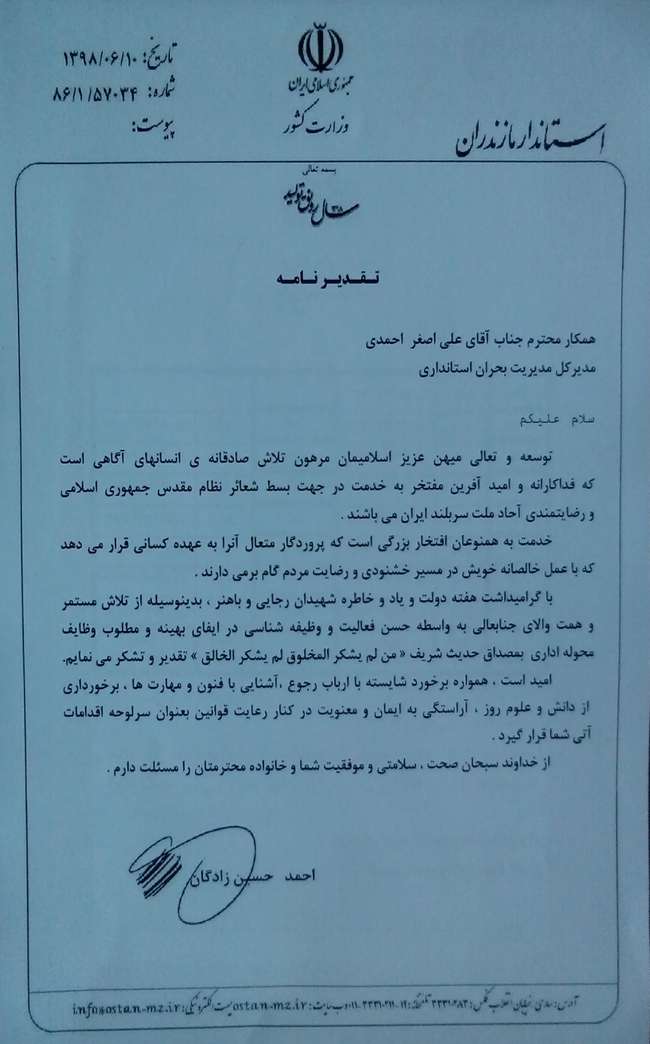 جمهوری اسلامی ایران
وزارت کشور
استاندار مازندران
تاریخ: ۱۳۹۸/۰۶/۱۰
شماره: ۸۶/۱/۵۷۰۳۴
پیوست:
بسمه تعالی
سال رونق تولید
تقدیر نامه
همکار محترم جناب آقای علی اصغر احمدی
مدیرکل مدیریت بحران استانداری
سلام علیکم
توسعه و تعالی میهن عزیز اسلامیمان مرهون تلاش صادقانه ی انسانهای آگاهی است
که فداکارانه و امید آفرین مفتخر به خدمت در جهت بسط شعائر نظام مقدس جمهوری اسلامی
و رضایتمندی آحاد ملت سربلند ایران می باشند .
خدمت به همنوعان افتخار بزرگی است که پروردگار متعال آنرا به عهده کسانی قرار می دهد
که با عمل خالصانه خویش در مسیر خشنودی و رضایت مردم گام برمی دارند .
با گرامیداشت هفته دولت و یاد و خاطره شهیدان رجایی و باهنر ، بدینوسیله از تلاش مستمر
و همت والای جنابعالی به واسطه حسن فعالیت و وظیفه شناسی در ایفای بهینه و مطلوب وظایف
محوله اداری بمصداق حدیث شریف « من لم یشکر المخلوق لم یشکر الخالق » تقدیر و تشکر می نمایم.
امید است ، همواره برخورد شایسته با ارباب رجوع ،آشنایی با فنون و مهارت ها ، برخورداری
از دانش و علوم روز ، آراستگی به ایمان و معنویت در کنار رعایت قوانین بعنوان سرلوحه اقدامات
آتی شما قرار گیرد .
از خداوند سبحان صحت ، سلامتی و موفقیت شما و خانواده محترمتان را مسئلت دارم .
احمد حسین زادگان
آدرس: ساری خیابان انقلاب تلفن: وب سایت: ostan-mz.ir پست الکترونیکی: info@ostan-mz.ir